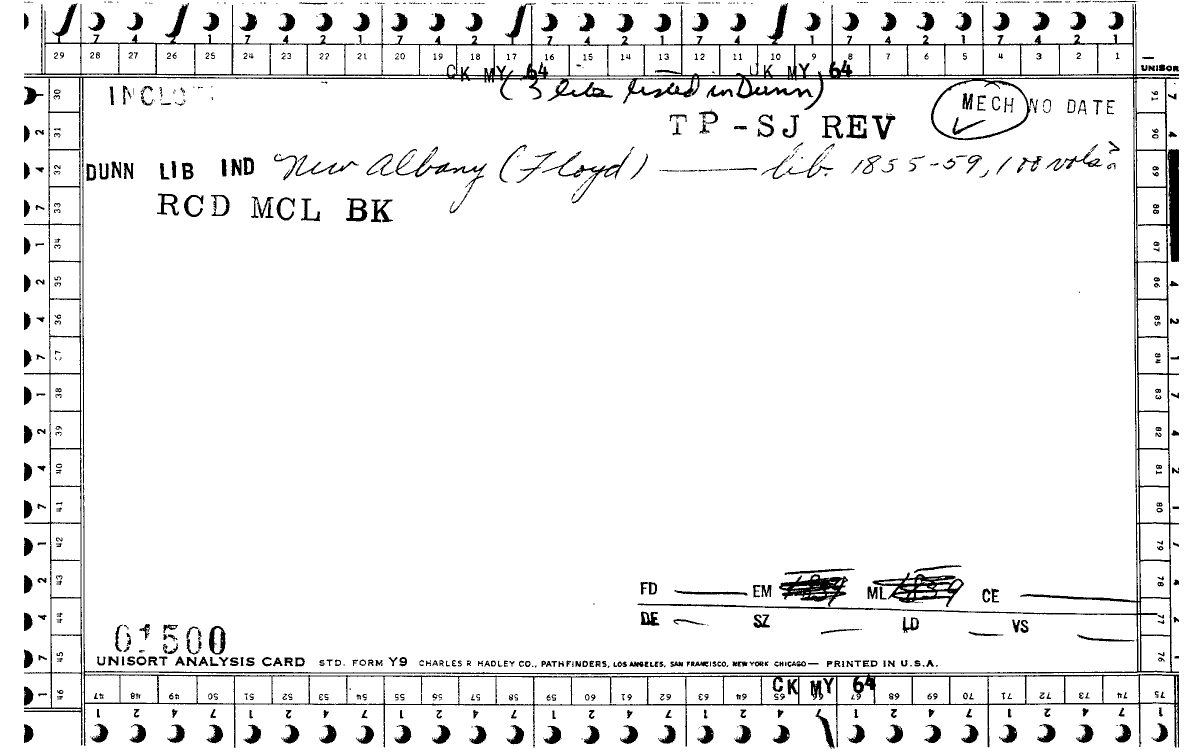 7 4 2 1 7 4 2 1 7 4 2 1 7 4 2 1 7 4 2 1 7 4 2 1 7 4 2 1
29 28 27 26 25 24 23 22 21 20 19 18 17 16 15 14 13 12 11 10 9 8 7 6 5 4 3 2 1
CK MY 64 CK MY 64
UNISOR
(3 libs listed in Dunn)
MECH NO DATE
TP-SJ REV
DUNN LIB IND New Albany (Floyd) — lib. 1855-59, 100 vols?
RCD MCL BK
30 31 32 33 34 35 36 37 38 39 40 41 42 43 44 45 46
91 90 89 88 87 86 85 84 83 82 81 80 79 78 77 76 75
FD — EM ML CE —
DE — SZ — LD — VS —
01500
UNISORT ANALYSIS CARD STD. FORM Y9 CHARLES R HADLEY CO., PATHFINDERS, LOS ANGELES, SAN FRANCISCO, NEW YORK CHICAGO — PRINTED IN U.S.A.
CK MY 64
47 48 49 50 51 52 53 54 55 56 57 58 59 60 61 62 63 64 65 66 67 68 69 70 71 72 73 74
1 2 4 7 1 2 4 7 1 2 4 7 1 2 4 7 1 2 4 7 1 2 4 7 1 2 4 7 1